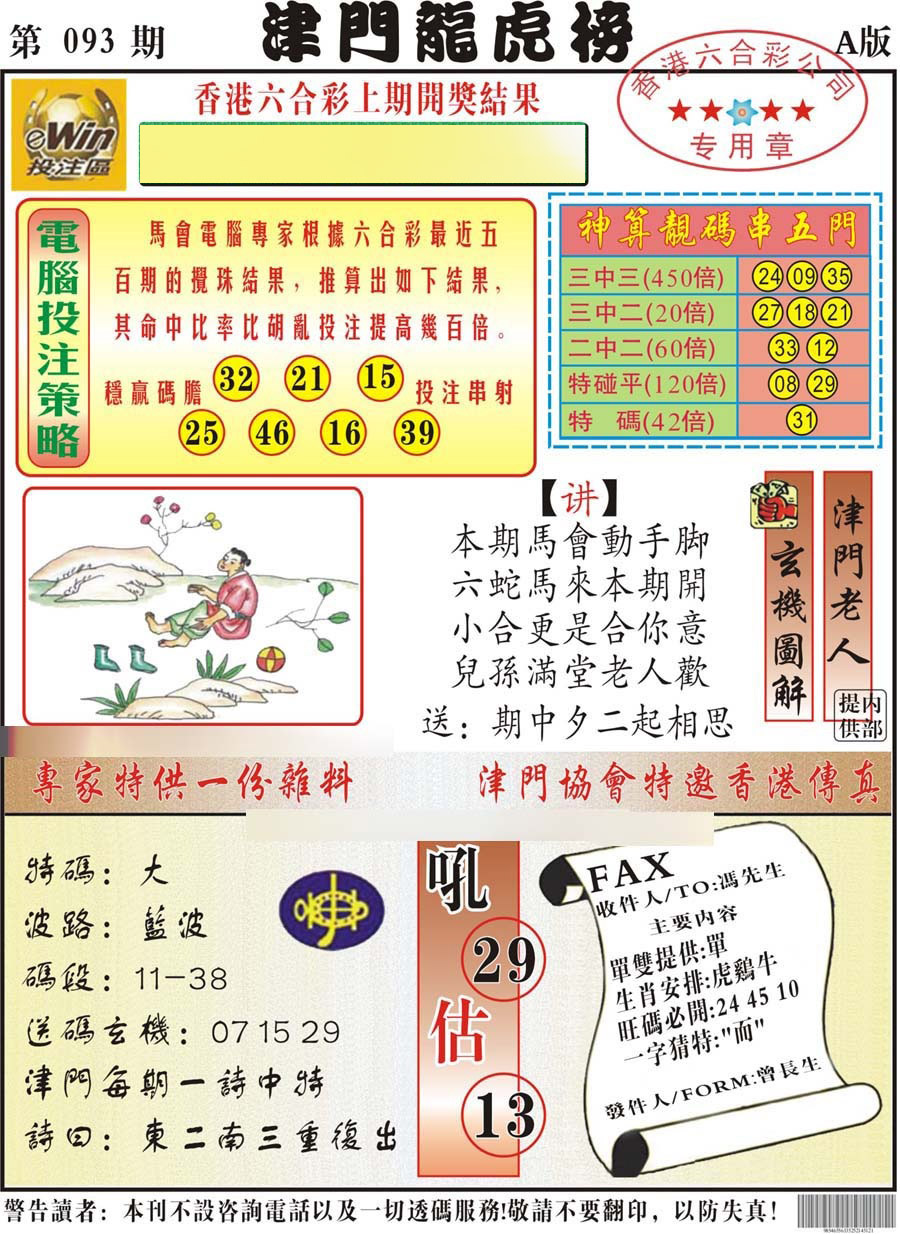 第 093 期
津門龍虎榜
A版
香港六合彩公司
专用章
eWin
投注區
香港六合彩上期開獎結果
電腦投注策略
馬會電腦專家根據六合彩最近五
百期的攪珠結果，推算出如下結果，
其命中比率比胡亂投注提高幾百倍。
穩贏碼膽 32 21 15 投注串射
25 46 16 39
神算靚碼串五門
三中三(450倍) 24 09 35
三中二(20倍) 27 18 21
二中二(60倍) 33 12
特碰平(120倍) 08 29
特 碼(42倍) 31
【讲】
本期馬會動手脚
六蛇馬來本期開
小合更是合你意
兒孫滿堂老人歡
送：期中夕二起相思
玄機圖解
津門老人
內部提供
專家特供一份雜料
津門協會特邀香港傳真
特碼：大
波路：藍波
碼段：11-38
送碼玄機：07 15 29
津門每期一詩中特
詩曰：東二南三重復出
吼
29
估
13
FAX
收件人/TO:馮先生
主要内容
單雙提供:單
生肖安排:虎鷄牛
旺碼必開:24 45 10
一字猜特:"而"
發件人/FORM:曾長生
警告讀者：本刊不設咨詢電話以及一切透碼服務!敬請不要翻印，以防失真！